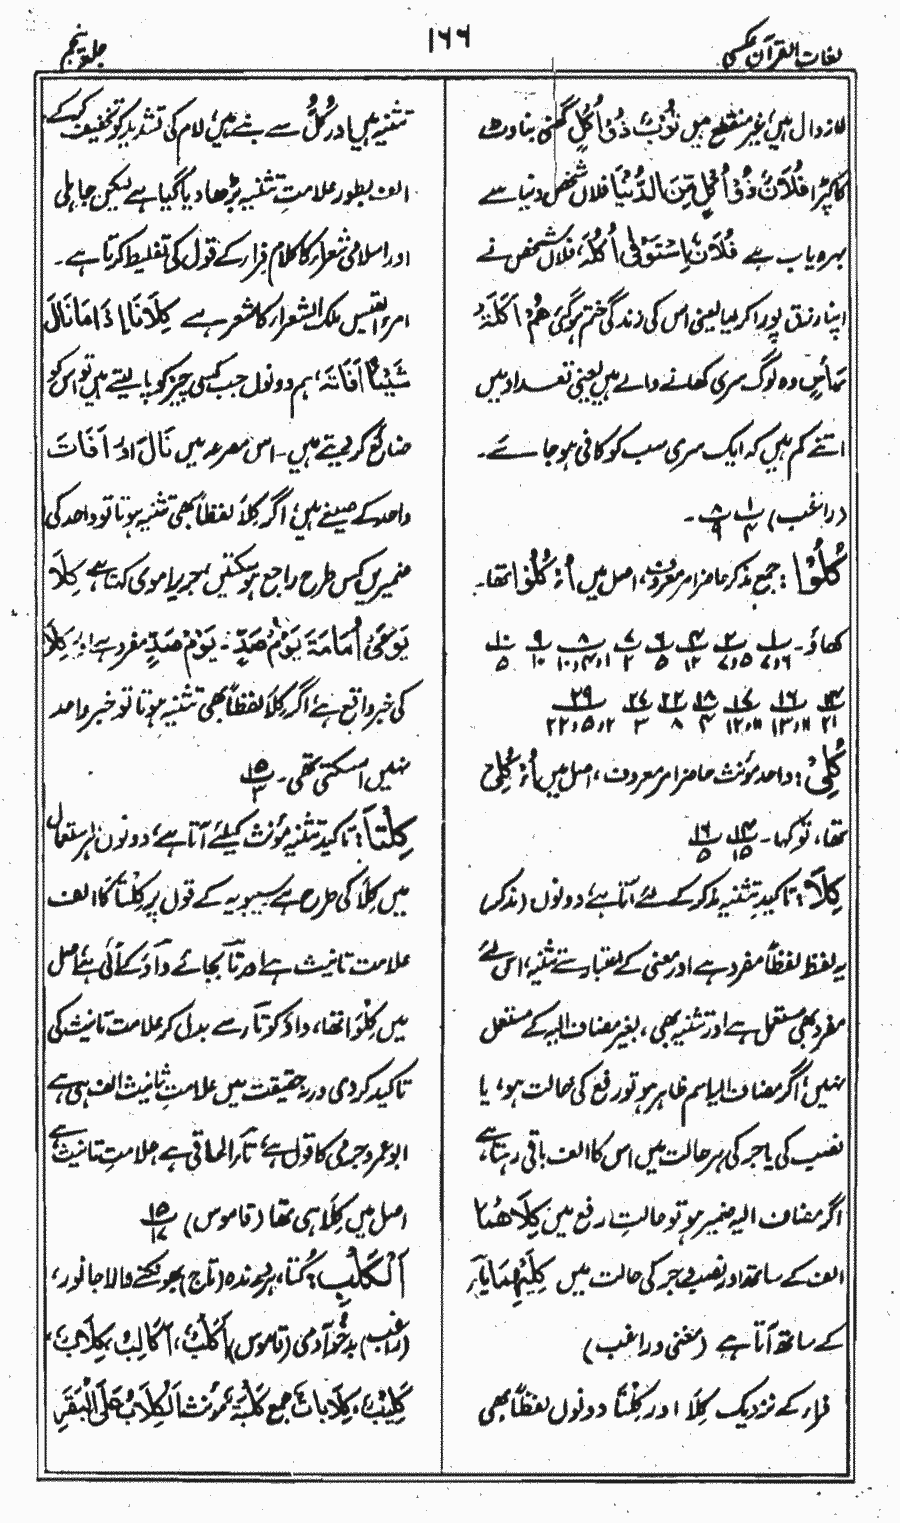 لغات القرآن عکسی
۱۶۶
جلد پنجم
لازوال ہیں، غیر منقطع ہیں ثَوْبٌ ذُوْ اُکُلٍ گھنی بناوٹ
کا کپڑا فُلَانٌ ذُوْ اُکُلٍ مِّنَ الدُّنْیَا فلاں شخص دنیا سے
بہرہ یاب ہے فُلَانٌ اِسْتَوْفٰی اُکُلَہٗ، فلاں شخص نے
اپنا رزق پورا کر لیا یعنی اس کی زندگی ختم ہوگئی ھُمْ اَکَلَۃُ
رَأْسٍ وہ لوگ سری کھانے والے ہیں یعنی تعداد میں
اتنے کم ہیں کہ ایک سری سب کو کافی ہو جائے۔
(راغب) ۱/۴ ۸/۹ ۔
کُلُوْا : جمع مذکر حاضر امر معروف، اصل میں اُءْ کُلُوْا تھا۔
کھاؤ۔ ۱/۶،۷ ۲/۵،۷ ۴/۱۲ ۶/۵ ۷/۲ ۸/۱،۴،۱۰ ۹/۱۰ ۱۰/۵
۱۴/۲۱ ۱۶/۱۱،۱۳ ۱۷/۱۱،۱۲ ۱۸/۴ ۲۲/۸ ۲۷/۳ ۲۹/۲،۵،۲۲
کُلِیْ : واحد مؤنث حاضر امر معروف، اصل میں اُءْ کُلِیْ
تھا، تو کہا۔ ۱۴/۱۵ ۱۶/۵
کِلَا : تاکید تثنیہ مذکر کے لئے آتا ہے، دونوں (مذکر)
یہ لفظ لفظاً مفرد ہے اور معنی کے اعتبار سے تثنیہ، اس لئے
مفرد بھی مستعمل ہے اور تثنیہ بھی، بغیر مضاف الیہ کے مستعمل
نہیں، اگر مضاف الیہ اسم ظاہر ہو تو رفع کی حالت ہو، یا
نصب کی یا جر کی ہر حالت میں اس کا الف باقی رہتا ہے،
اگر مضاف الیہ ضمیر ہو تو حالتِ رفع میں کِلَاھُمَا
الف کے ساتھ اور نصب و جر کی حالت میں کِلَیْھِمَا یاء
کے ساتھ آتا ہے (مغنی و راغب)
فراء کے نزدیک کِلَا اور کِلْتَا دونوں لفظاً بھی
تثنیہ ہیں اور کُلٌّ سے بنے ہیں، لام کی تشدید کو تخفیف کر کے
الف بطور علامتِ تثنیہ بڑھا دیا گیا ہے لیکن جاہلی
اور اسلامی شعراء کا کلام فراء کے قول کی تغلیط کرتا ہے۔
امرء القیس ملک الشعراء کا شعر ہے کِلَانَا اِذَا مَا نَالَ
شَیْئًا اَفَاتَہٗ، ہم دونوں جب کسی چیز کو پا لیتے ہیں تو اس کو
ضائع کر دیتے ہیں۔ اس مصرعہ میں نَالَ اور اَفَاتَ
واحد کے صیغے ہیں، اگر کِلَا لفظاً بھی تثنیہ ہوتا تو واحد کی
ضمیریں کس طرح راجع ہو سکتیں، جریر اموی کہتا ہے کِلَا
یَوْمَیْ اُمَامَۃَ یَوْمُ صَدٍّ۔ یَوْمُ صَدٍّ مفرد ہے اور کِلَا
کی خبر واقع ہے، اگر کِلَا لفظاً بھی تثنیہ ہوتا تو خبر واحد
نہیں آسکتی تھی۔ ۱۵/۳
کِلْتَا : تاکید تثنیہ مؤنث کیلئے آتا ہے، دونوں، استعمال
میں کِلَا کی طرح ہے سیبویہ کے قول پر کِلْتَا کا الف
علامت تانیث ہے اور تا بجائے واؤ کے آئی ہے، اصل
میں کِلْوَا تھا، واؤ کو تاء سے بدل کر علامت تانیث کی
تاکید کر دی ورنہ حقیقت میں علامتِ تانیث الف ہی ہے
ابو عمرو جرمی کا قول ہے، تاء الحاقی ہے علامتِ تانیث ہے
اصل میں کِلَا ہی تھا (قاموس) ۱۵/۱۷
اَلْکَلْبِ : کُتا، ہر درندہ (تاج) بھونکنے والا جانور،
(راغب) بدخو آدمی (قاموس) اَکْلُبٌ، اَکَالِبُ، کِلَابٌ،
کَلِیْبٌ، کِلَابَاتٌ جمع کَلْبَۃٌ مؤنث اَلْکِلَابُ عَلَی الْبَقَرِ